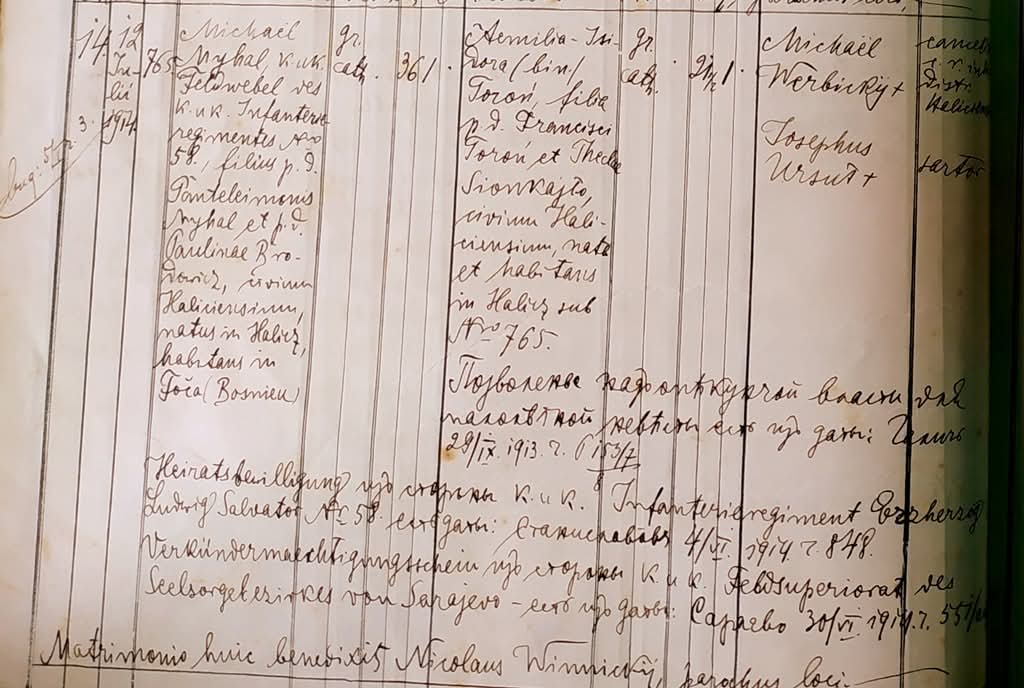 14 12 Julii 1914
765
Michaël
Nyhal, K.u.K.
Feldwebel des
K.u.K. Infanterie
regimentes Nro
58, filius p.d.
Panteleimonis
Nyhal et p.d.
Paulinae Bro-
dowicz, civium
Haliciensium,
natus in Halicz,
habitans in
Foča (Bosnien)
gr.
cath.
36 1
Aemilia-Isi-
dora (bin.)
Toroń, filia
p.d. Francisci
Toroń et Theclae
Sionkajło,
civium Hali-
ciensium, nata
et habitans
in Halicz sub
Nro 765.
gr.
cath.
1
Michaël
Werbickyj +
Josephus
Ursuł +
sartor
власти для
есть з дати: Галичъ
29/IX 1913 г. 153/7
Heiratsbewilligung зо стороны K.u.K. Infanterieregiment Erzherzog
Ludwig Salvator Nr 58. есть даты: Станиславовъ 4/VI 1914 г. 848.
Verkündermaechtigungsschein зо стороны K.u.K. Feldsuperiorat des
Seelsorgebezirkes von Sarajevo – есть з даты: Сараево 30/VI 1914. г.
Matrimonio huic benedixit Nicolaus Winnickij, parochus loci.